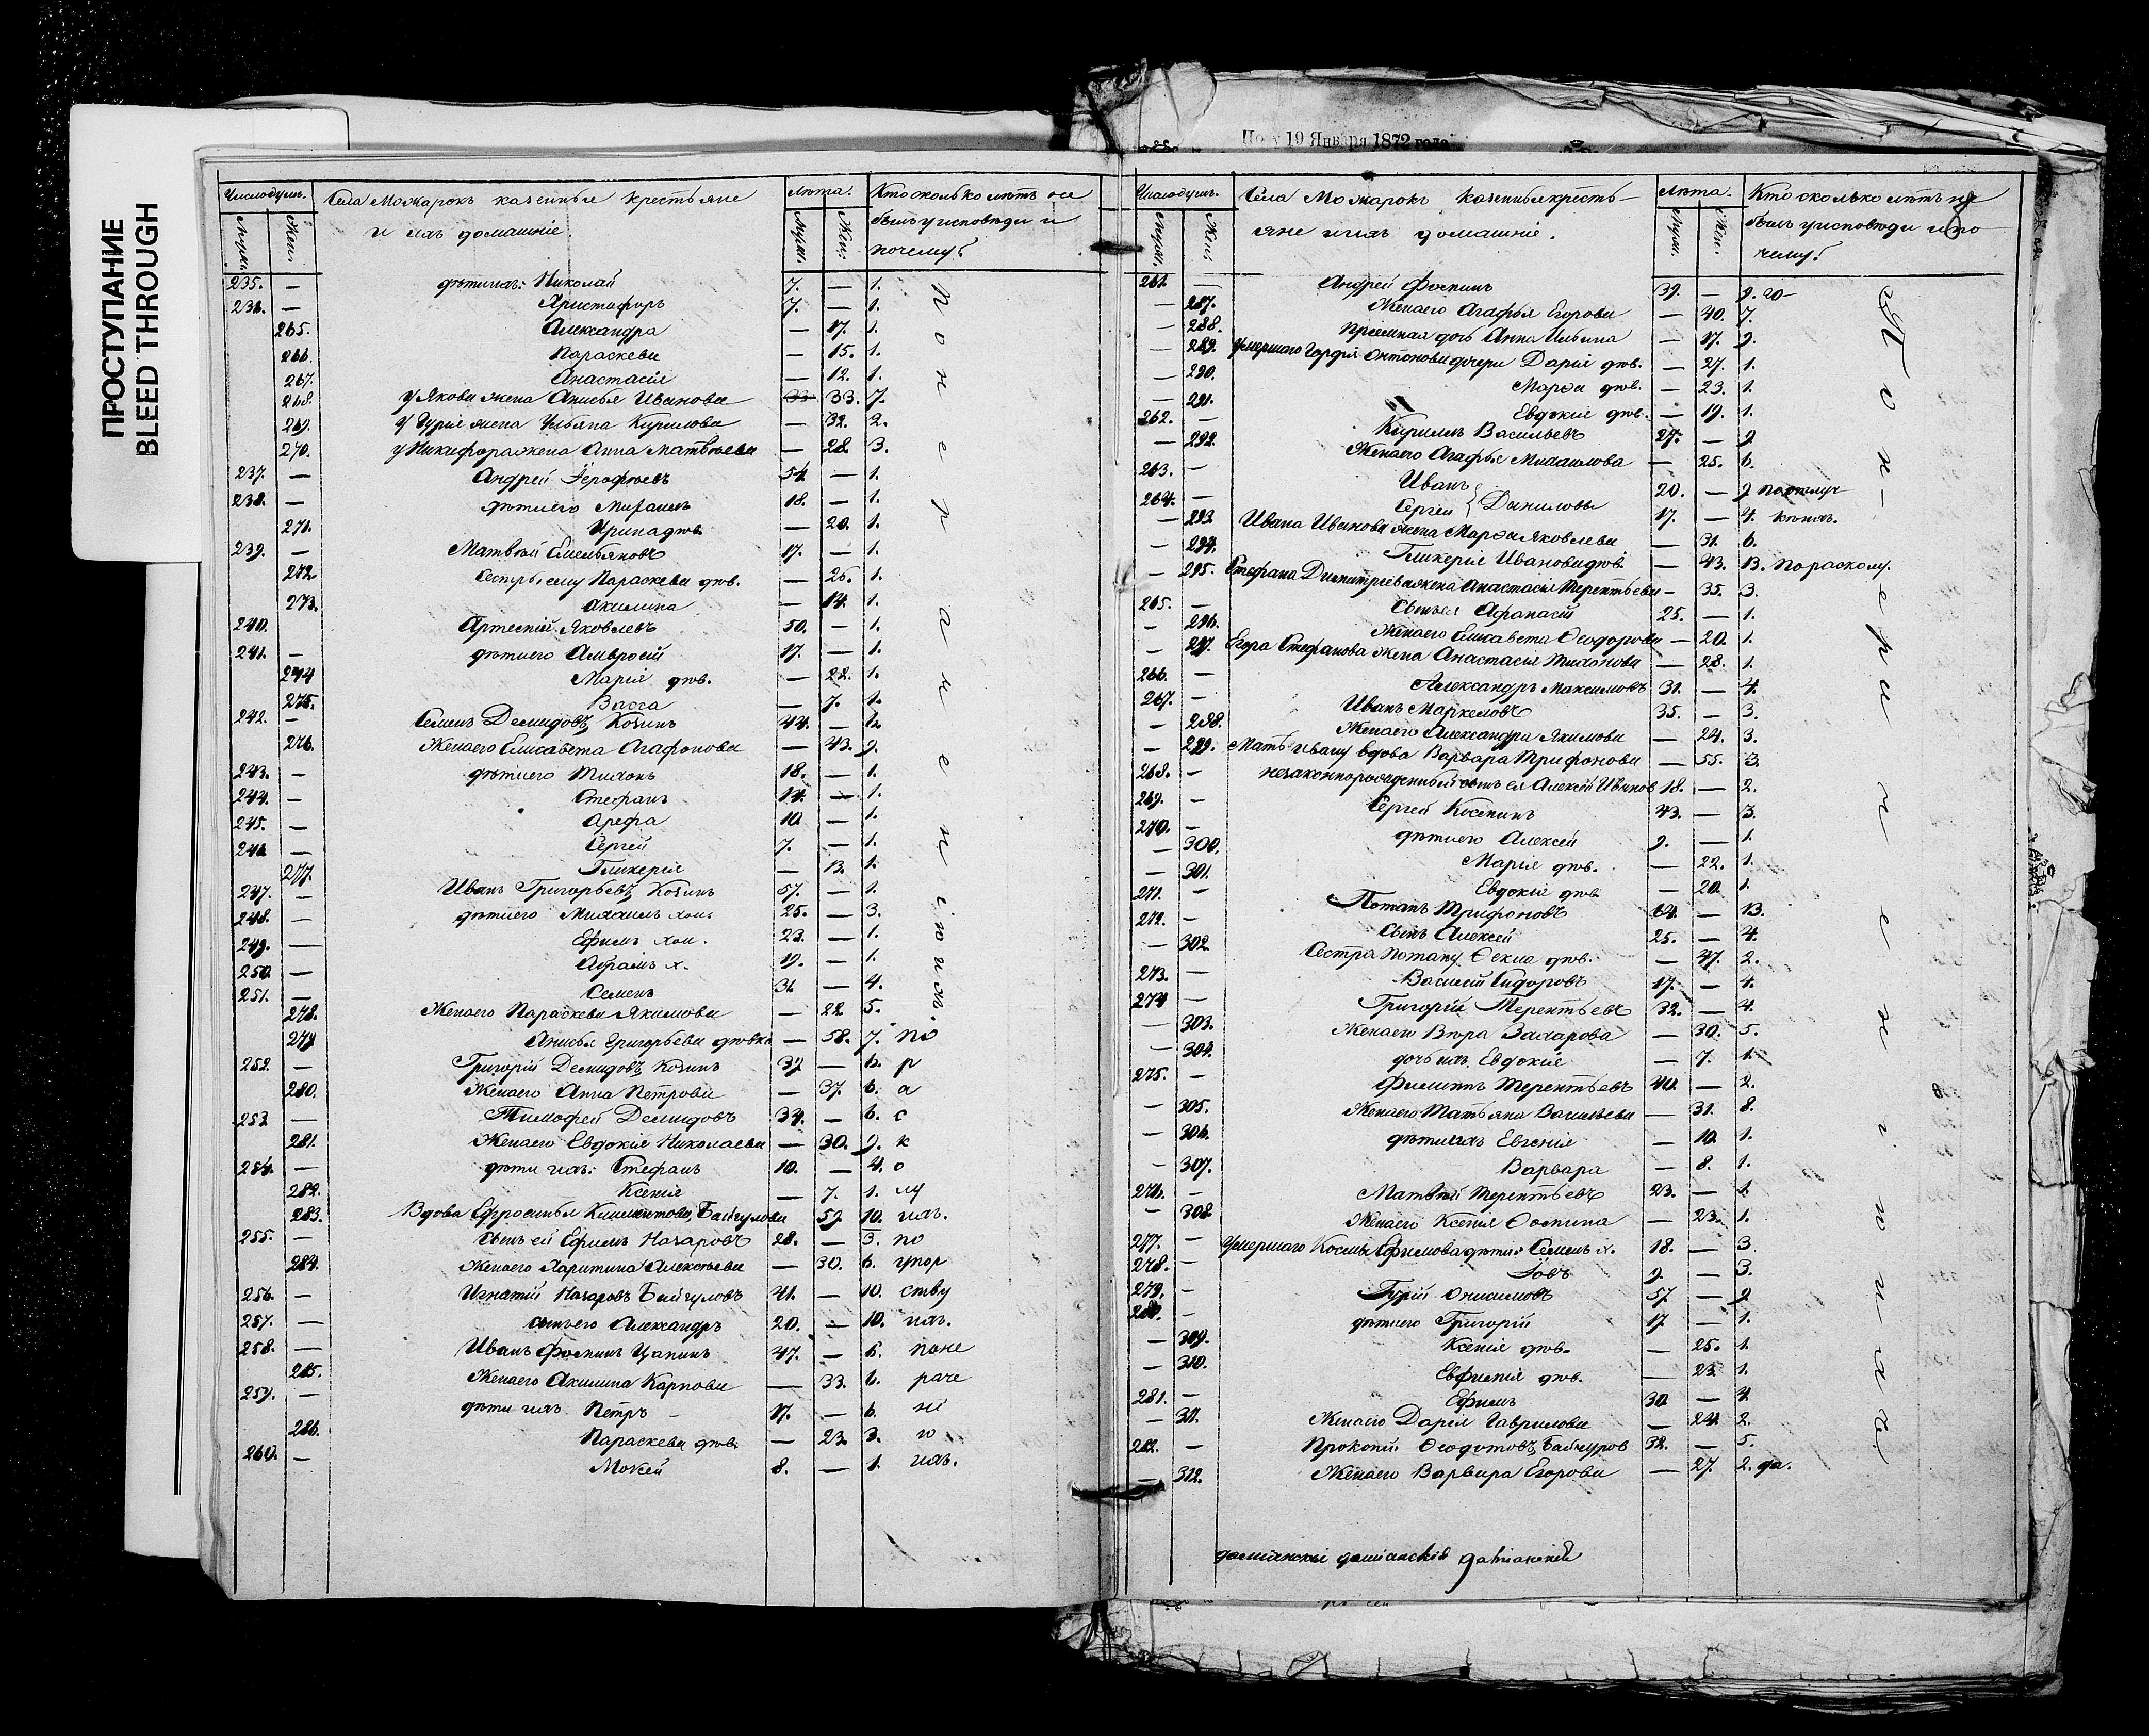 ПРОСТУПАНИЕ
BLEED THROUGH
19 Января 1872 года
Числодушъ. Села Можарокъ казенные крестьяне Лѣта. Кто сколько лѣтъ не
и ихъ домашніе былъ у исповѣди и
Муж. Жен. Муж. Жен. почему?
235. — дѣти ихъ: Николай 7. — 1.
236. — Христофоръ 7. — 1.
265. Александра — 17. 1.
266. Параскева — 15. 1.
267. Анастасія — 12. 1.
268. у Якова жена Анисья Иванова 33 33. 7.
269. у Гурія жена Ульяна Кирилова — 32. 2.
270. у Никифора жена Анна Матвѣева — 28. 3.
237. — Андрей Іерофѣевъ 54. — 1.
238. — дѣти его Михаилъ 18. — 1.
271. Ирина дѣв. — 20. 1.
239. — Матвѣй Емельяновъ 17. — 1.
272. Сестры ему Параскева дѣв. — 25. 1.
273. Акилина — 14. 1.
240. Артемій Яковлевъ 50. — 1.
241. — дѣти его Амвросій 17. — 1.
274 Марія дѣв. — 22. 1.
275. Васса — 7. 1.
242. — Семенъ Демидовъ, Козинъ 44. — 12.
276. Жена его Елисавета Агафонова — 43. 9.
243. — дѣти его Тихонъ 18. — 1.
244. — Стефанъ 14. — 1.
245. — Арефа 10. — 1.
246. — Сергей 7. — 1.
277. Гликерія — 13. 1.
247. — Иванъ Григорьевъ, Козинъ 57. — 1.
248. — дѣти его Михаилъ хол. 25. — 3.
249. — Ефимъ хол. 23. — 1.
250. — Абрамъ х. 19. — 1.
251. — Семенъ 31. — 4.
278. Жена его Параскева Якимова — 22. 5.
279. Анисья Григорьева дѣвка — 58. 7. по
252. — Григорій Демидовъ, Козинъ 37. — 6. р
280. Жена его Анна Петрова — 37. 6. а
253. — Тимофей Демидовъ 34. — 6. с
281. Жена его Евдокія Николаева — 30. 9. к
254. — дѣти ихъ: Стефанъ 10. — 4. о
282. Ксенія — 7. 1. лу
283. Вдова Ефросинья Климентова, Байгулова 59. 10. ихъ.
255. — Сынъ ей Ефимъ Назаровъ 28. — 3. по
284. Жена его Харитина Алексѣева — 30. 6. упор
256. — Игнатій Назаровъ Байгуловъ 41. — 10. ству
257. — сынъ его Александръ 20. — 10. ихъ.
258. — Иванъ Фоминъ Цапинъ 47. — 6. по не
285. Жена его Акилина Карпова — 33. 6. раче
259. — дѣти ихъ Петръ 17. — 6. ні
286. Параскева дѣв. — 23. 3. ю
260. — Мокей 8. — 1. ихъ.
по нераченію ихъ.
Числодушъ. Села Можарокъ казенные кресть- Лѣта. Кто сколько лѣтъ не
яне и ихъ домашніе. былъ у исповѣди и по
Муж. Жен. Муж. Жен. чему?
261. — Андрей Фоминъ 39. — 9. го-
— 287. Жена его Агафья Егорова — 40. 7.
— 288. Пріемная дочь Анна Ильина — 17. 9.
— 289. Умершаго Гордія Антонова дочери Дарія дѣв. — 27. 1.
— 290. Марѳа дѣв. — 23. 1.
— 291. Евдокія дѣв. — 19. 1.
262. — Кирилъ Васильевъ 27. — 9
— 292. Жена его Агафья Михаилова — 25. 6.
263. — Иванъ 20. — 9 по отлуч
264. — Сергей } Даниловы 17. — 4. кѣ ихъ.
— 293. Ивана Иванова жена Марѳа Яковлева — 31. 6.
— 294. Гликерія Иванова дѣв. — 43. 13. по расколу.
— 295. Стефана Димитріева жена Анастасія Терентьева — 35. 3.
265. — Сынъ ея Афанасій 25. — 1.
— 296. Жена его Елисавета Ѳеодорова — 20. 1.
— 297. Егора Стефанова жена Анастасія Тихонова — 28. 1.
266. — Александръ Максимовъ 31. — 4.
267. — Иванъ Маркеловъ 35. — 3.
— 298. Жена его Александра Якимова — 24. 3.
— 299. Мать Ивану вдова Варвара Трифонова — 55. 3.
268. — незаконнорожденный сынъ ея Алексей Иванов 18. — 2.
269. — Сергей Косминъ 43. — 3.
270. — дѣти его Алексей 9. — 1.
— 300. Марія дѣв. — 22. 1.
— 301. Евдокія дѣв. — 20. 1.
271. — Потапъ Трифоновъ 64. — 13.
272. — Сынъ Алексей 25. — 4.
— 302. Сестра Потапу Ѳекла дѣв. — 47. 2.
273. — Василій Сидоровъ 17. — 4.
274 — Григорій Терентьевъ 32. — 4.
— 303. Жена его Вѣра Захарова — 30. 5.
— 304. дочь ихъ Евдокія — 7. 1.
275. — Филиппъ Терентьевъ 40. — 2.
— 305. Жена его Татьяна Васильева — 31. 8.
— 306. дѣти ихъ Евгенія — 10. 1.
— 307. Варвара — 8. 1.
276. — Матвѣй Терентьевъ 23. — 1.
— 308. Жена его Ксенія Ѳомина — 23. 1.
277. — Умершаго Космы Ефимова дѣти: Семенъ х. 18. — 3.
278. — Іовъ 9. — 3.
279. — Гурій Онисимовъ 57 — 9
280. — дѣти его Григорій 17 — 1.
— 309. Ксенія дѣв. — 25. 1.
— 310. Евфимія дѣв. — 23. 1.
281. — Ефимъ 30 — 4.
— 311. Жена его Дарія Гаврилова — 24. 2.
282. — Прокопій Ѳеодотовъ, Байгуров 32. — 5.
— 312. Жена его Варвара Егорова — 27. 2. да.
По нераченію ихъ.